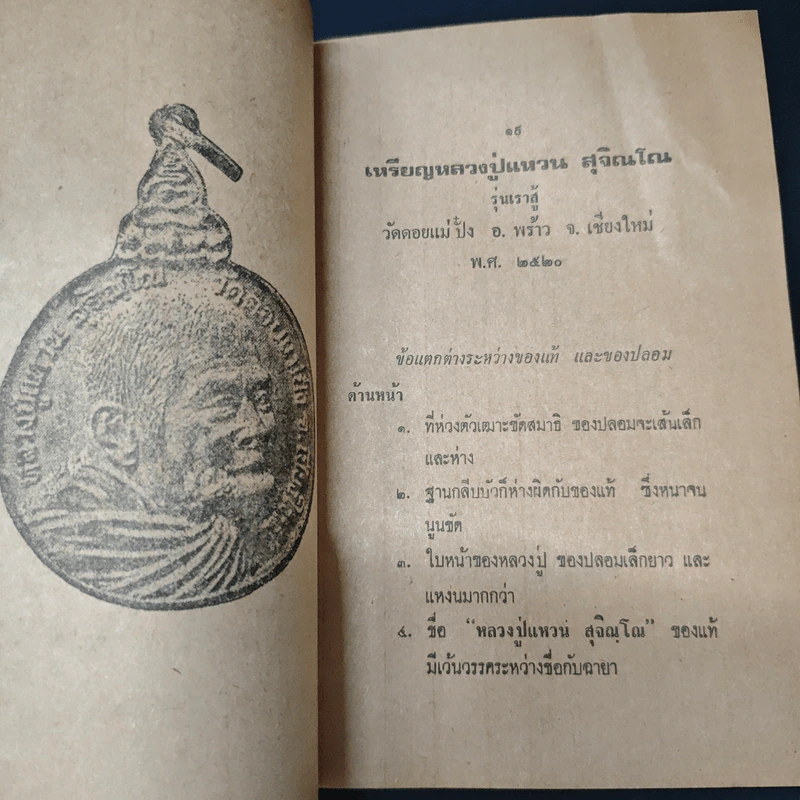 หลวงปู่แหวน สุจิณฺโณ วัดดอยแม่ปั๋ง จ.เชียงใหม่
๑๕
เหรียญหลวงปู่แหวน สุจิณโณ
รุ่นเราสู้
วัดดอยแม่ปั๋ง อ. พร้าว จ. เชียงใหม่
พ.ศ. ๒๕๒๐
ข้อแตกต่างระหว่างของแท้ และของปลอม
ด้านหน้า
๑. ที่ห่วงตัวเฒาะขัดสมาธิ ของปลอมจะเส้นเล็ก
และห่าง
๒. ฐานกลีบบัวก็ห่างผิดกับของแท้ ซึ่งหนาจน
นูนชัด
๓. ใบหน้าของหลวงปู่ ของปลอมเล็กยาว และ
แหงนมากกว่า
๔. ชื่อ “หลวงปู่แหวน สุจิณฺโณ” ของแท้
มีเว้นวรรคระหว่างชื่อกับฉายา